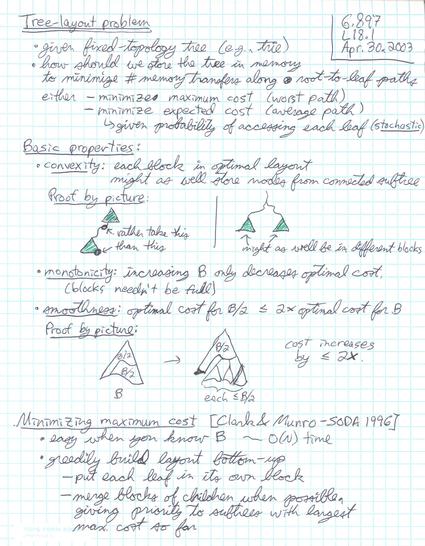 Tree-layout problem
6.897
L18.1
Apr. 30. 2003
• given fixed-topology tree (e.g., trie)
• how should we store the tree in memory
to minimize # memory transfers along root-to-leaf paths
either – minimize maximum cost (worst path)
– minimize expected cost (average path)
↳ given probability of accessing each leaf (stochastic)
Basic properties:
• convexity: each block in optimal layout
might as well store nodes from connected subtree
Proof by picture:
rather take this
than this
might as well be in different blocks
• monotonicity: increasing B only decreases optimal cost.
(blocks needn't be full)
• smoothness: optimal cost for B/2 ≤ 2x optimal cost for B
Proof by picture:
B/2
B/2
B
→
B/2
each ≤ B/2
cost increases
by ≤ 2x.
Minimizing maximum cost [Clark & Munro – SODA 1996]
• easy when you know B ~ O(N) time
• greedily build layout bottom-up
– put each leaf in its own block
– merge blocks of children when possible,
giving priority to subtrees with largest
max. cost so far